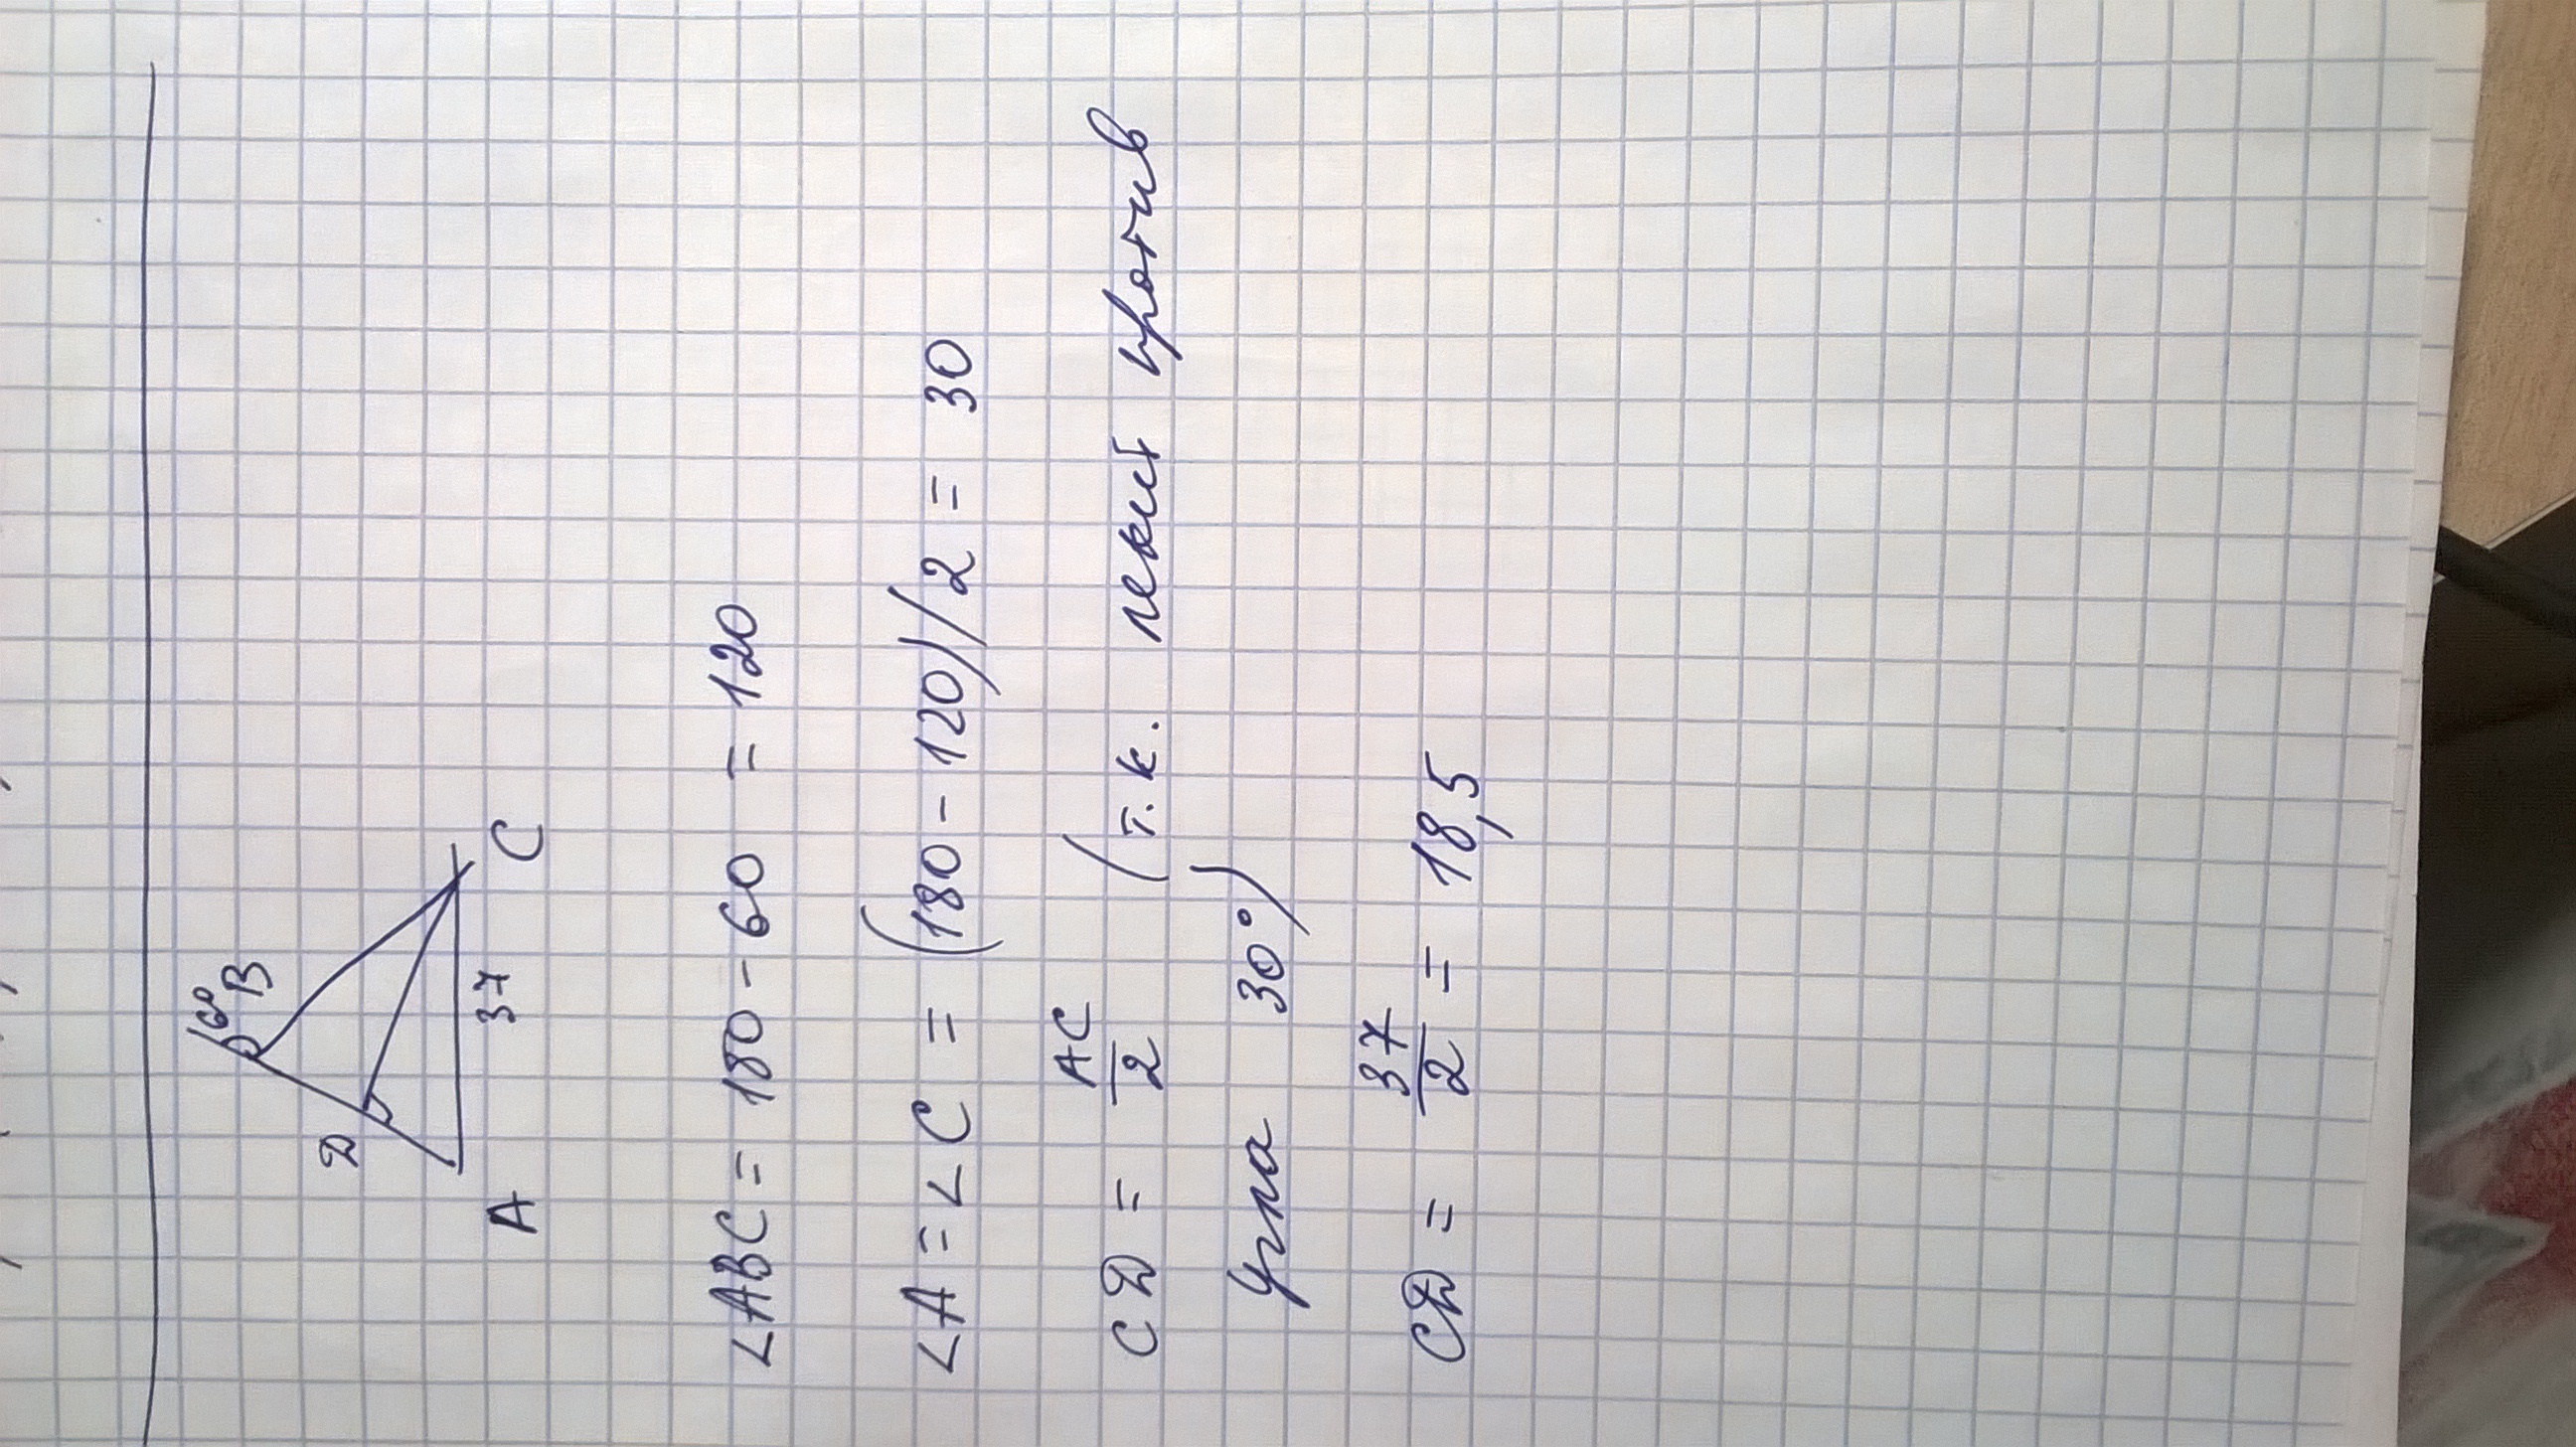 60°
B
D
A
37
C
∠ABC = 180 - 60 = 120
∠A = ∠C = (180 - 120)/2 = 30
CD = AC/2 (т.к. лежит против
угла 30°)
CD = 37/2 = 18,5